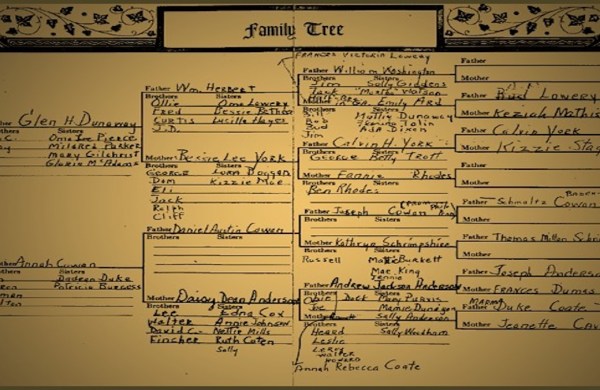 Family Tree
FRANCES VICTORIA LOWERY
Father Glen H. Dunaway
Brothers Sisters
Oma Lee Pierce
Mildred Parker
Mary Gilchrist
Gloria McAdams
Annah Cowen
Sisters
Dadeen Duke
Patricia Burgess
Father Wm. Herbert
Brothers Sisters
Ollie Oma Lowery
Fred Bessie
Curtis Lucille Hayes
J.D.
Mother Bessie Lee York
Brothers Sisters
George Lorn Doggen
Dom Kizzie Mae
Eli
Jack
Ralph
Cliff
Father Daniel Austin Cowen
Brothers Sisters
Mother Daisy Dean Anderson
Brothers Sisters
Lee Edna Cox
Walter Annie Johnson
David C. Nettie Mills
Fincher Ruth Coten
Sally
Father William Washington
Brothers Sisters
Jim Sally Giddens
Watson
Mother Emily Ard
Brothers Sisters
Mollie Dunaway
Bob
Bud Ada Dixen
Jim
Father Calvin H. York
Brothers Sisters
George Betty Trott
Mother Fannie Rhodes
Brothers Sisters
Ben Rhodes
Father Joseph Cowan
Brothers Sisters
Mother Kathryn Schrimpshire
Brothers Sisters
Russell Burkett
Mae King
Jennie
Father Andrew Jackson Anderson
Brothers Sisters
Obie Dock Mary Purvis
Joe Mamie Dunagan
Mother Sally Anderson
Brothers Sisters
Heard Sally Windham
Leslie
Leroy
Walter
Howard
Annah Rebecca Coate
Father
Mother
Father Bud Lowery
Mother Keziah Mathis
Father Calvin York
Mother Kizzie
Father
Mother
Father Schmaltz Cowan
Mother
Father Thomas Millon
Mother
Father Joseph Anderson
Mother Frances Dumas
Father Duke Coate
Mother Jeanette